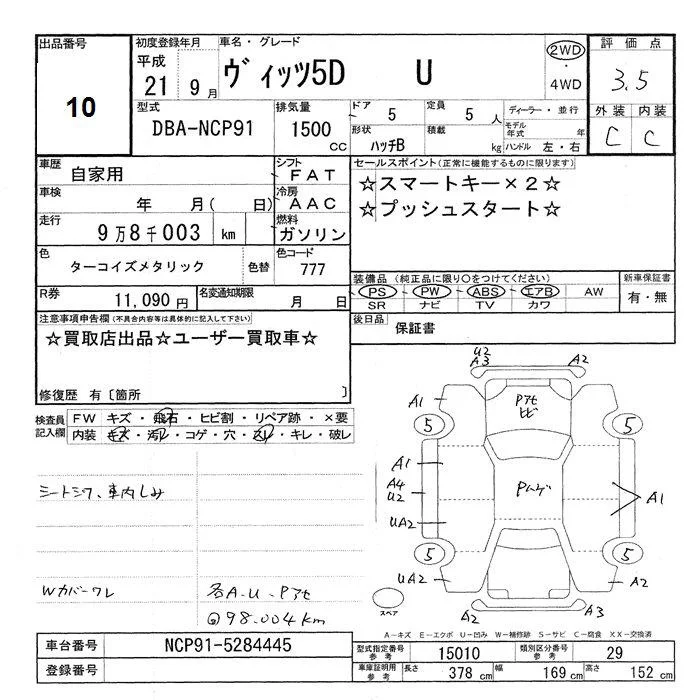 出品番号
10
初度登録年月
平成
21 9月
車名・グレード
ヴィッツ5D U
2WD
・
4WD
評価点
3.5
外装 内装
C C
型式
DBA-NCP91
排気量
1500
CC
ドア 5
定員 5人
ディーラー・並行
モデル年式 年
形状 ハッチB
積載 kg
ハンドル 左・右
車歴 自家用
シフト FAT
車検 年 月( 日)
冷房 AAC
走行 9万8千003 km
燃料 ガソリン
セールスポイント(正常に機能するものに限ります)
☆スマートキー×2☆
☆プッシュスタート☆
色 ターコイズメタリック 色替
色コード 777
R券 11,090円
名変通知期限 月 日
装備品(純正品に限り○をつけてください)
PS PW ABS エアB AW
SR ナビ TV カワ
新車保証書
有・無
後日品 保証書
注意事項申告欄(不具合内容等は具体的に記入して下さい)
☆買取店出品☆ユーザー買取車☆
修復歴 有〔箇所 〕
検査員記入欄
FW キズ・飛石・ヒビ割・リペア跡・×要
内装 キズ・汚レ・コゲ・穴・スレ・キレ・破レ
シートシワ、車内しみ
Wカバーワレ
各A.U.Pアセ
@98.004km
U2
A3 A2
A1
Pアセ
ヒビ
5 5
A1
A4
U2
UA2
Pムゲ
A1
5 5
UA2 A2
スペア
A2 A3
A-キズ E-エクボ U-凹み W-補修跡 S-サビ C-腐食 XX-交換済
車台番号 NCP91-5284445
登録番号
型式指定番号参考 15010
類別区分番号参考 29
車庫証明用参考 長さ 378 cm 幅 169 cm 高さ 152 cm